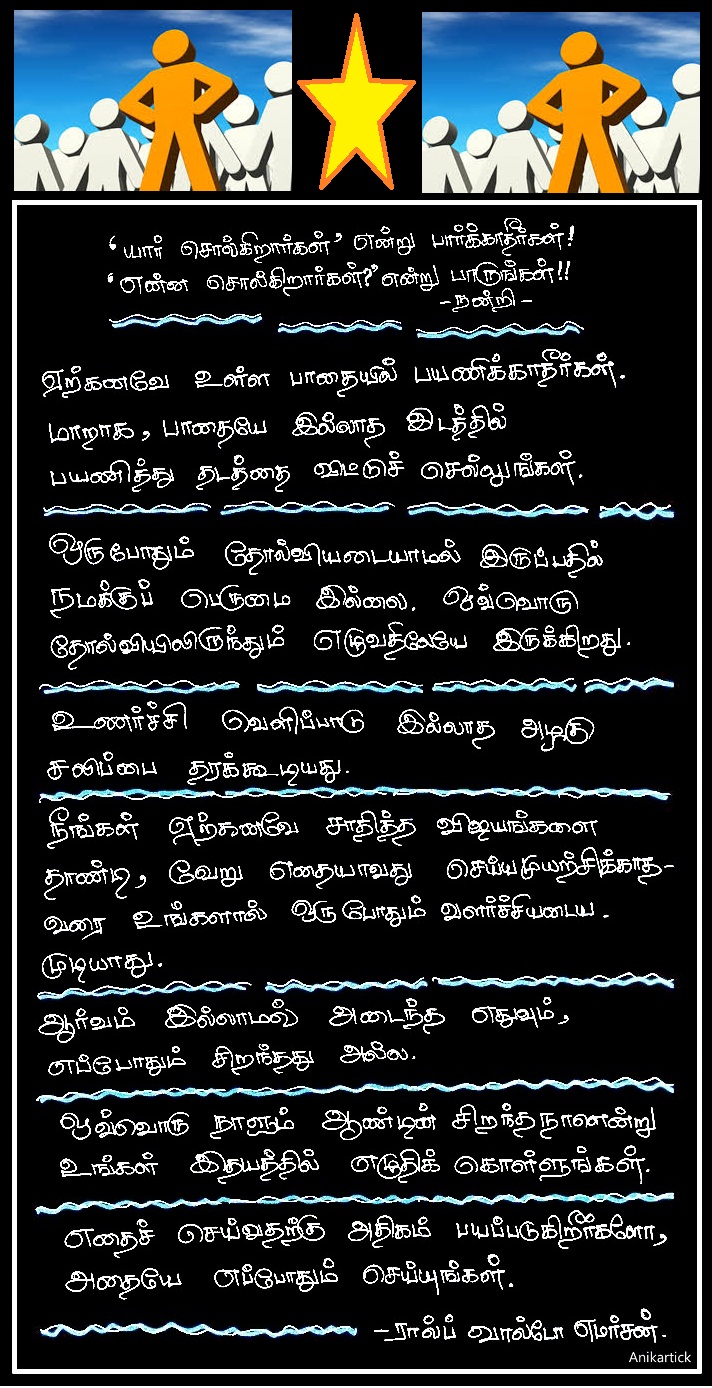 ‘யார் சொல்கிறார்கள்’ என்று பார்க்காதீர்கள்!
‘என்ன சொல்கிறார்கள்?’ என்று பாருங்கள்!!
-நன்றி-
ஏற்கனவே உள்ள பாதையில் பயணிக்காதீர்கள்.
மாறாக, பாதையே இல்லாத இடத்தில்
பயணித்து தடத்தை விட்டுச் செல்லுங்கள்.
ஒருபோதும் தோல்வியடையாமல் இருப்பதில்
நமக்குப் பெருமை இல்லை. ஒவ்வொரு
தோல்வியிலிருந்தும் எழுவதிலேயே இருக்கிறது.
உணர்ச்சி வெளிப்பாடு இல்லாத அழகு
சலிப்பை தரக்கூடியது.
நீங்கள் ஏற்கனவே சாதித்த விஜயங்களை
தாண்டி, வேறு எதையாவது செய்யமுயற்சிக்காத-
வரை உங்களால் ஒருபோதும் வளர்ச்சியடைய.
முடியாது.
ஆர்வம் இல்லாமல் அடைந்த எதுவும்,
எப்போதும் சிறந்தது அல்ல.
ஒவ்வொரு நாளும் ஆண்டின் சிறந்தநாளென்று
உங்கள் இதயத்தில் எழுதிக் கொள்ளுங்கள்.
எதைச் செய்வதற்கு அதிகம் பயப்படுகிறீர்களோ,
அதையே எப்போதும் செய்யுங்கள்.
-ரால்ப் வால்போ எமர்சன்.
Anikartick